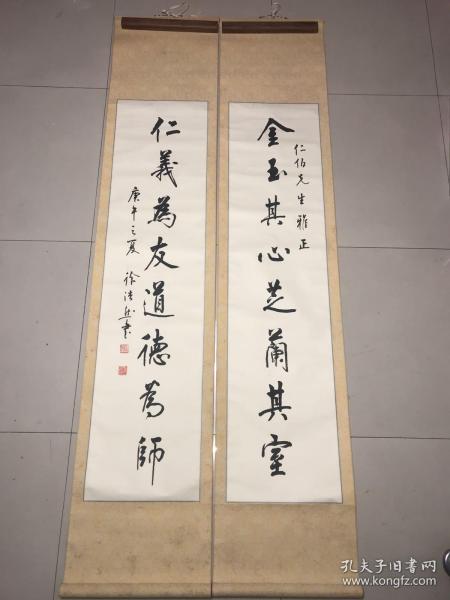 金玉其心芝蘭其室
仁伯先生雅正
仁義為友道德為師
庚午之夏 徐浩然書
孔夫子旧书网
www.kongfz.com